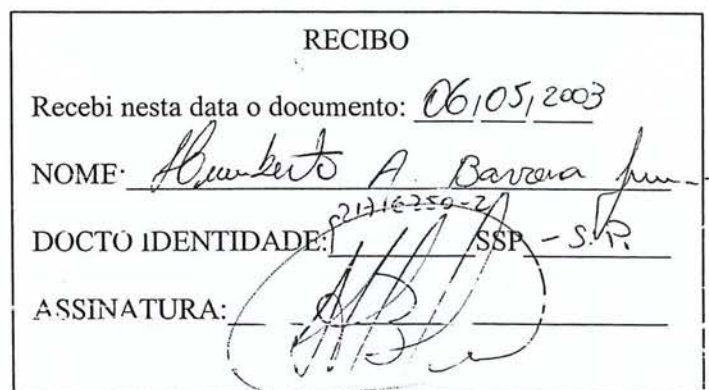 RECIBO
Recebi nesta data o documento: 06/05/2003
NOME: Humberto A. Barrera
DOCTO IDENTIDADE: SSP - S.P.
ASSINATURA: